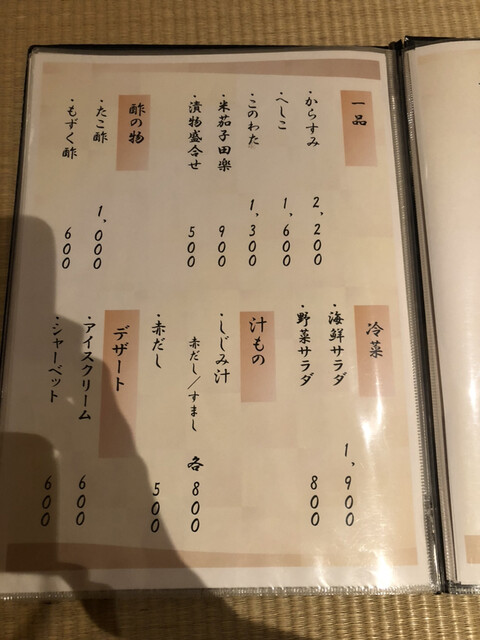 一品
・からすみ 2,200
・へしこ 1,600
・このわた 1,300
・米茄子田楽 900
・漬物盛合せ 500
酢の物
・たこ酢 1,000
・もずく酢 600
冷菜
・海鮮サラダ 1,900
・野菜サラダ 800
汁もの
・しじみ汁
赤だし/すまし 各800
・赤だし 500
デザート
・アイスクリーム 600
・シャーベット 600